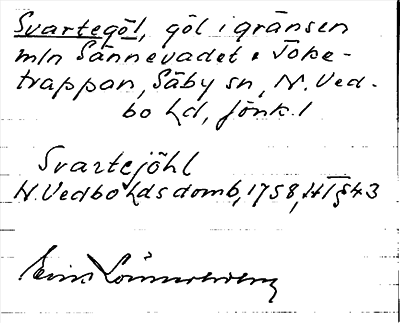 Svartegöl, göl i gränsen
mln Sännevadet o Toke-
trappan, Säby sn, N. Ved-
bo hd, Jönk. l
Svartejöhl
N. Vedbo hds domb, 1758, HT § 43